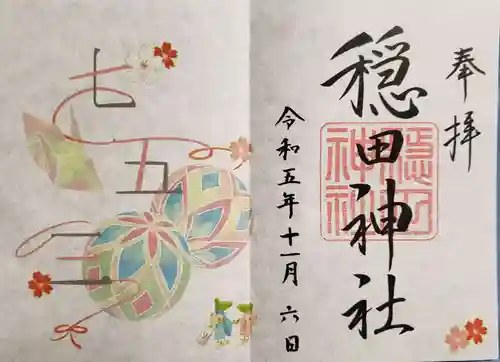 奉拝
穏田神社
令和五年十一月六日
七五三
穏田
神社